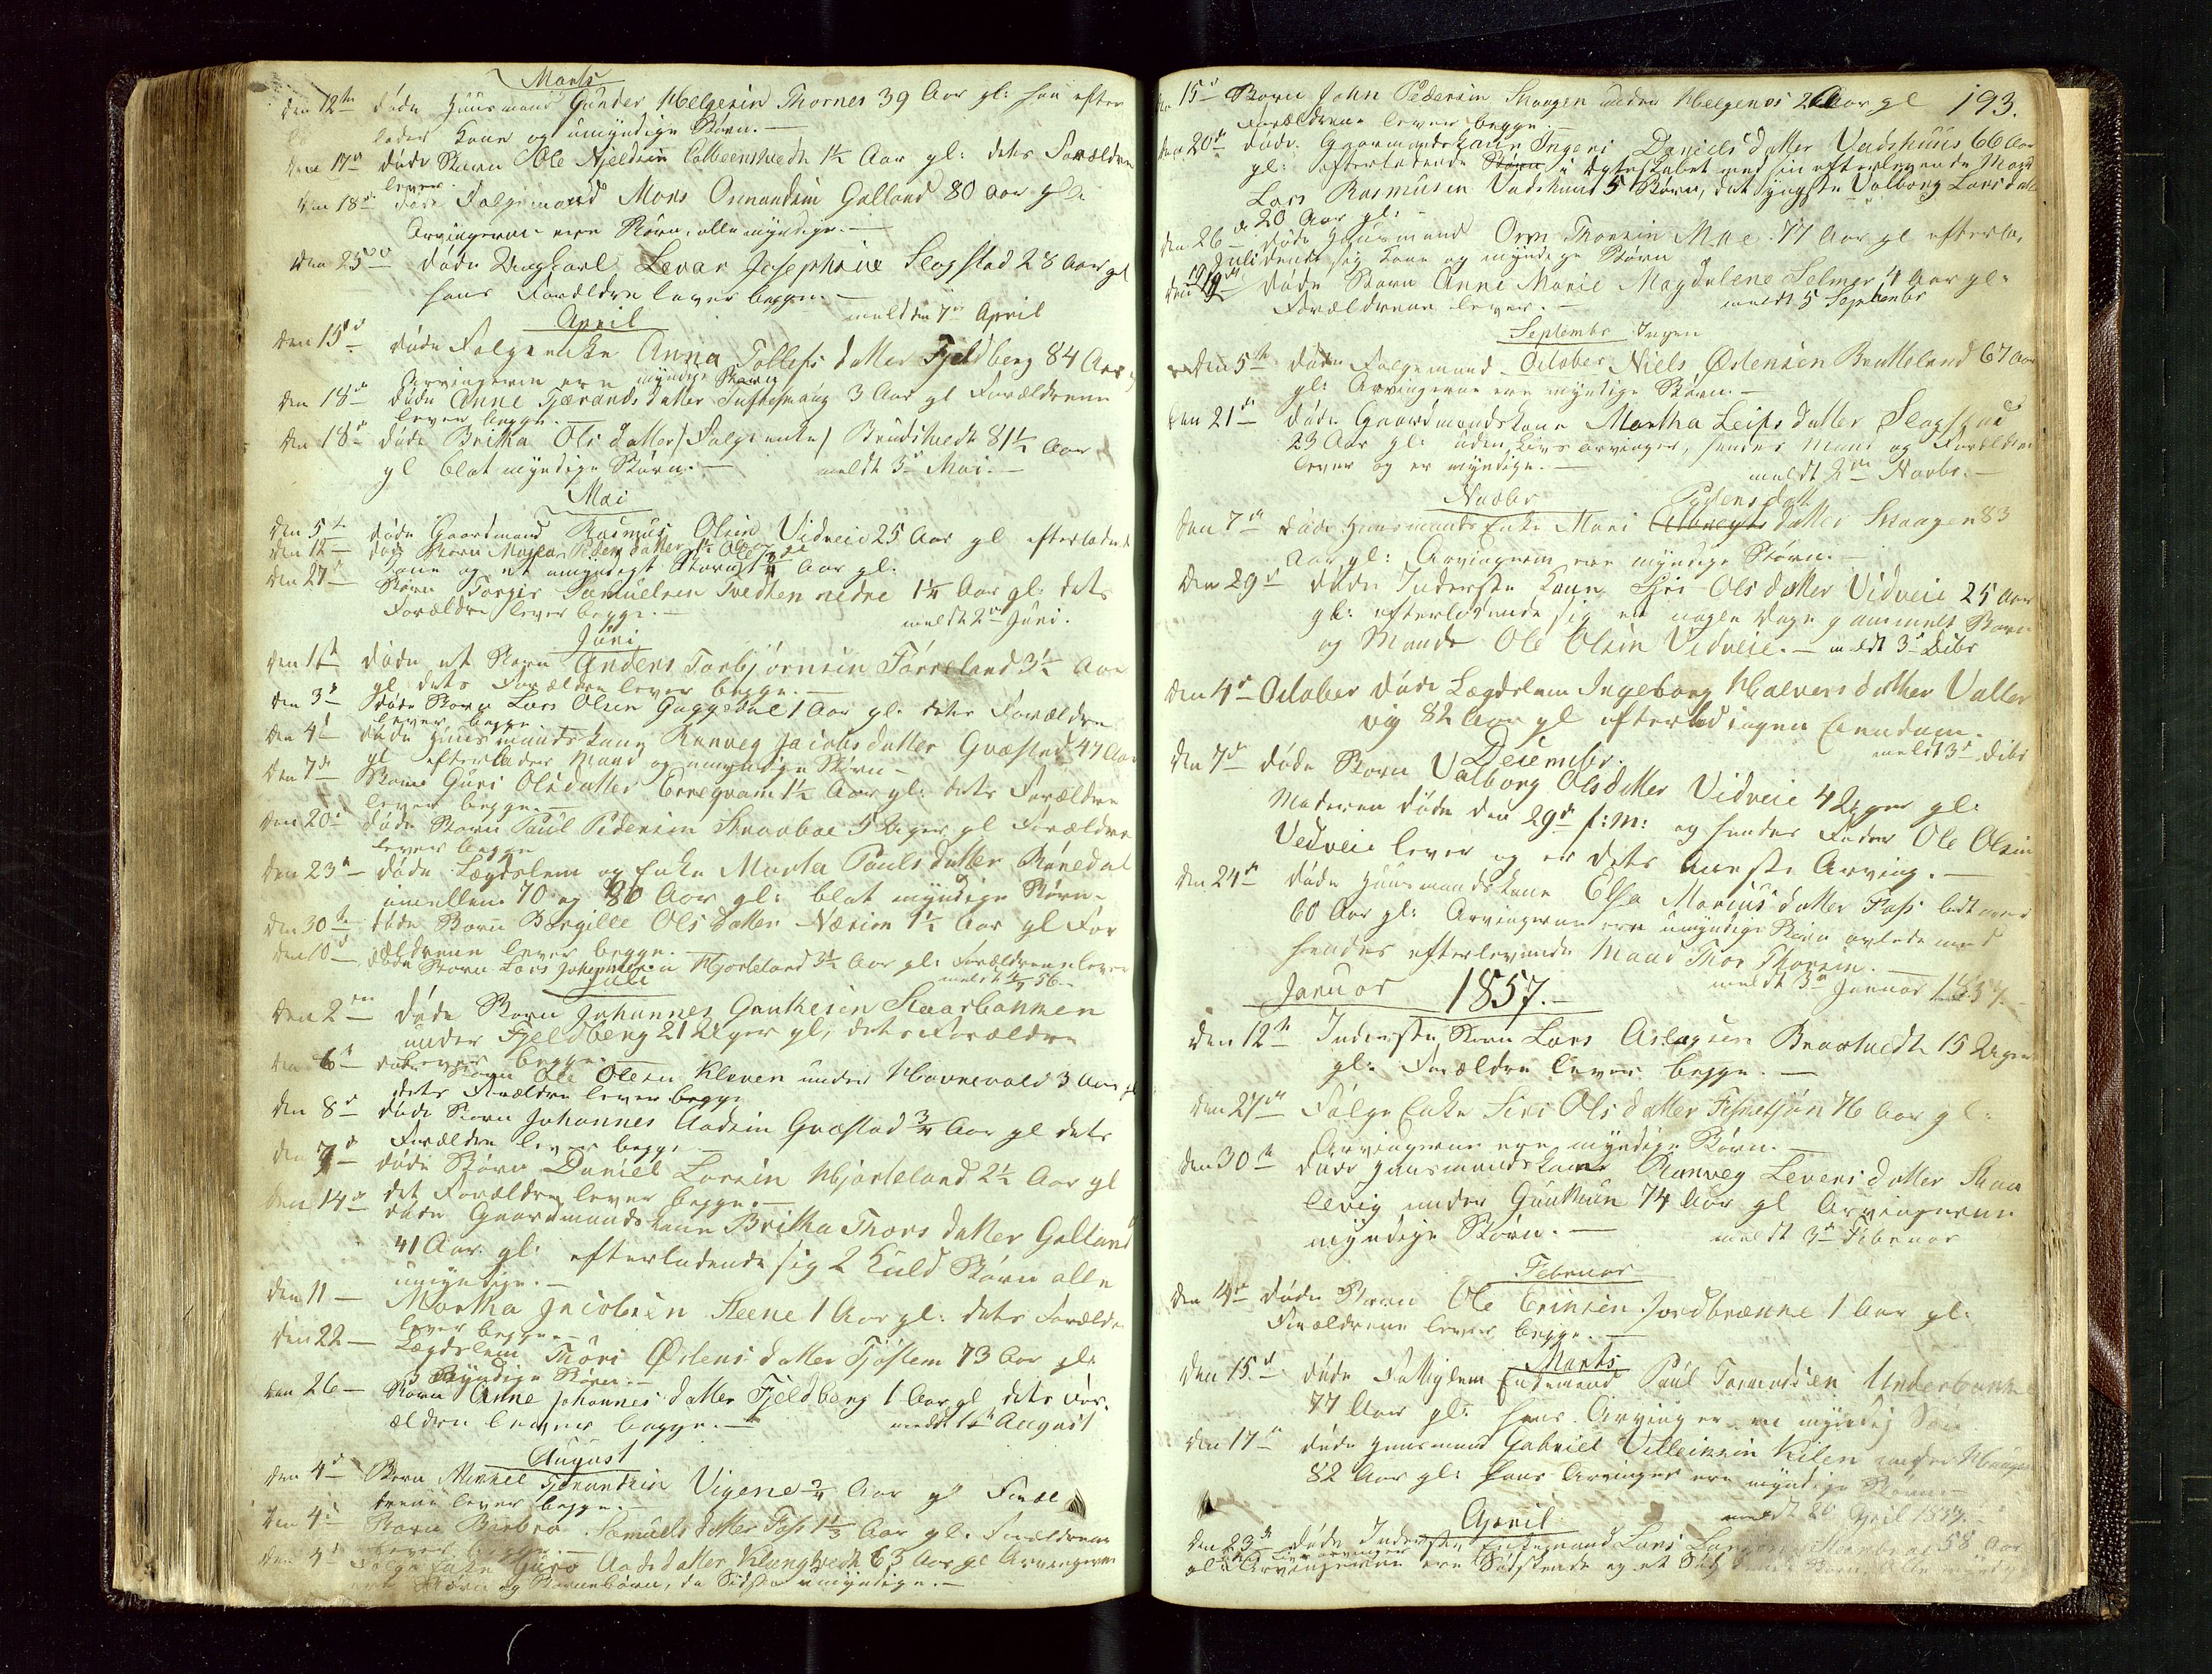 Marts
den 12te døde Huusmand Gunder Helgesen Thornes 39 Aar gl: han efter
lader Kone og umyndige Børn. —
den 17de døde Barn Ole Kjeldsen 1½ Aar gl: dets Forældre
lever.
den 18de døde Følgemand Mons Osmundsen Galland 80 Aar gl:
Arvingerne ere Børn, alle myndige. —
den 25de døde Ungkarl Levar Josephsen Slogstad 28 Aar gl
hans Forældre lever begge. —
meldt den 7de April
April
den 15de døde Følgeenke Anna Tollefsdatter Fjeldberg 84 Aar
Arvingerne ere myndige Børn
den 18de døde Anne Tjerandsdatter 3 Aar gl Forældrene
lever begge. —
den 18de døde Britha Olsdatter (Følgeenke) Brudstvedt 81½ Aar
gl blot myndige Børn. — meldt 3de Mai. —
Mai
den 5te døde Gaardmand Rasmus Olsen Vidveie 25 Aar gl efterladende
den 12 — døde Barn Pedersdatter
Kone og et umyndigt Barn ¼ Aar gl:
den 27de Barn Torger Samuelsen Tvedten nedre 1¼ Aar gl: dets
Forældre lever begge. —
meldt 2den Juni.
Juni
den 1ste døde et Barn Anders Torbjørnsen Tørreland 3½ Aar
gl dets Forældre lever begge. —
den 3de døde Barn Lars Olsen Guggedal 1 Aar gl: dets Forældre
lever begge
den 4de døde Huusmandskone Ranveg Jacobsdatter Gvæstad 47 Aar
gl efterlader Mand og umyndige Børn —
den 7de Barn Guri Olsdatter Erregvam 1½ Aar gl: dets Forældre
lever begge. —
den 20de døde Barn Paul Pedersen Straaboe 5 Uger gl Forældre
lever begge
den 23de døde Lægdslem og Enke Marta Paulsdatter Rønedal
imellem 70 og 80 Aar gl: blot myndige Børn —
den 30te døde Barn Børgille Olsdatter Nærim 1½ Aar gl For
ældrene lever begge. —
den 10de døde Barn Lars Johannesen Hjorteland 3½ Aar gl: Forældrene lever
meldt 4/7 56.
Juli
den 2den døde Barn Johannes Gautesen Skaarbakken
under Fjeldberg 21 Uger gl, dets Forældre
lever begge. —
den 6te døde Barn Ole Olsen Kleven under Havnevold 3 Aar gl
dets Forældre lever begge
den 8de døde Barn Johannes Aadsen Gvæstad ¾ Aar gl dets
Forældre lever begge
den 7de døde Børn Daniel Larsen Hjorteland 2½ Aar gl
det Forældre lever begge. —
den 14de døde Gaardmandskone Britha Thorsdatter Galland
41 Aar gl: efterladende sig 2 Kuld Børn alle
umyndige. —
den 11 — Martha Jacobsen Steene 1 Aar gl: dets Forældre
lever begge. —
den 22 — Lægdslem Thori Østensdatter Tjøstem 73 Aar gl:
3 myndige Børn. —
den 26 — Barn Anne Johannesdatter Fjeldberg 1 Aar gl dets For-
ældre lever begge. — meldt 1ste August
August
den 4de Barn Mikkel Tjerandsen Vigene ¾ Aar gl Foræl
drene lever begge. —
den 4de Barn Barbro Samuelsdatter Foss 1⅓ Aar gl: Forældrene
lever begge. —
den 4de Følgeenke Guro Aadsdatter Klungtvedt 63 Aar gl Arvingerne
ere Børn og Børnebørn, de Sidste umyndige. —
193.
den 15de Barn John Pedersen Skaagen under Helgenes 2 Aar gl
Forældrene lever begge —
den 20de døde Gaarmandskone Ingeri Danielsdatter Vadshuus 66 Aar
gl: efterladende Børn i Egteskabet med sin efterlevende Mand
Lars Rasmusen Vadshuus 5 Børn, det yngste Valborg Larsdatter
20 Aar gl: —
den 26 — døde Huusmand Orm Thorsen Moe 77 Aar gl efterla-
dende sig Kone og myndige Børn
Juli
den 19de døde Barn Anne Marie Magdalene Selmer 4 Aar gl:
Forældrene lever. — meldt 5 September
Septembr Ingen
October
den 5te døde Følgemand Niels Østensen Bratteland 67 Aar
gl: Arvingerne ere myndige Børn. —
den 21de døde Gaardmandskone Martha Leifsdatter Slogstad
23 Aar gl: uden Livsarvinger, hendes Mand og Forældre
lever og er myndige. — meldt 2den Novbr. —
Novbr
den 7de døde Huusmands Enke Mari Albregtsdatter Skaagen 83
Aar gl: Arvingerne ere myndige Børn. —
den 29de døde Inderste Kone Siri Olsdatter Vidveie 25 Aar
gl: efterladende sig et nogle Dage gammelt Barn
og Mande Ole Olsen Vidveie. — meldt 3de Debr
den 4de October døde Lægdslem Ingeborg Halversdatter Valler
vig 82 Aar gl efterlod ingen Eiendom. —
meldt 3de Debr
December.
den 7de døde Barn Valborg Olsdatter Vidveie 4 Uger gl:
Moderen døde den 29de f: M: og hendes Fader Ole Olsen
Vedveie lever og er dets næste Arving. —
den 24de døde Huusmandskone Elsa Mariusdatter Foss lidt over
60 Aar gl: Arvingerne ere umyndige Børn avlede med
hendes efterlevende Mand Thor Thorsen. —
meldt 3de Januar 1857. —
Januar 1857. —
den 12te Inderste Barn Lars Aslagsen Brastvedt 15 Uger
gl: Forældre lever begge. —
den 27de Følge Enke Siri Olsdatter 76 Aar gl:
Arvingerne ere myndige Børn. —
den 30te døde Huusmandskone Ranveg Leversdatter Skaa
levig under Gunthun 74 Aar gl Arvingerne
myndige Børn. — meldt 3de Februar
Februar
den 4de døde Barn Ole Eriksen Jordbrænne 1 Aar gl:
Forældrene lever begge. —
Marts
den 15de døde Fattiglem Enkemand Paul Tormodsen Underbakke
77 Aar gl: hans Arving er en myndig Søn
den 17de døde Huusmand Gabriel Villeiksen Kilen under
82 Aar gl: hans Arvinger ere myndige Børn —
meldt 20 April 1857. —
April
den 23de døde Inderste Enkemand Lars 58 Aar
gl: Arvingerne ere Sødskende og et